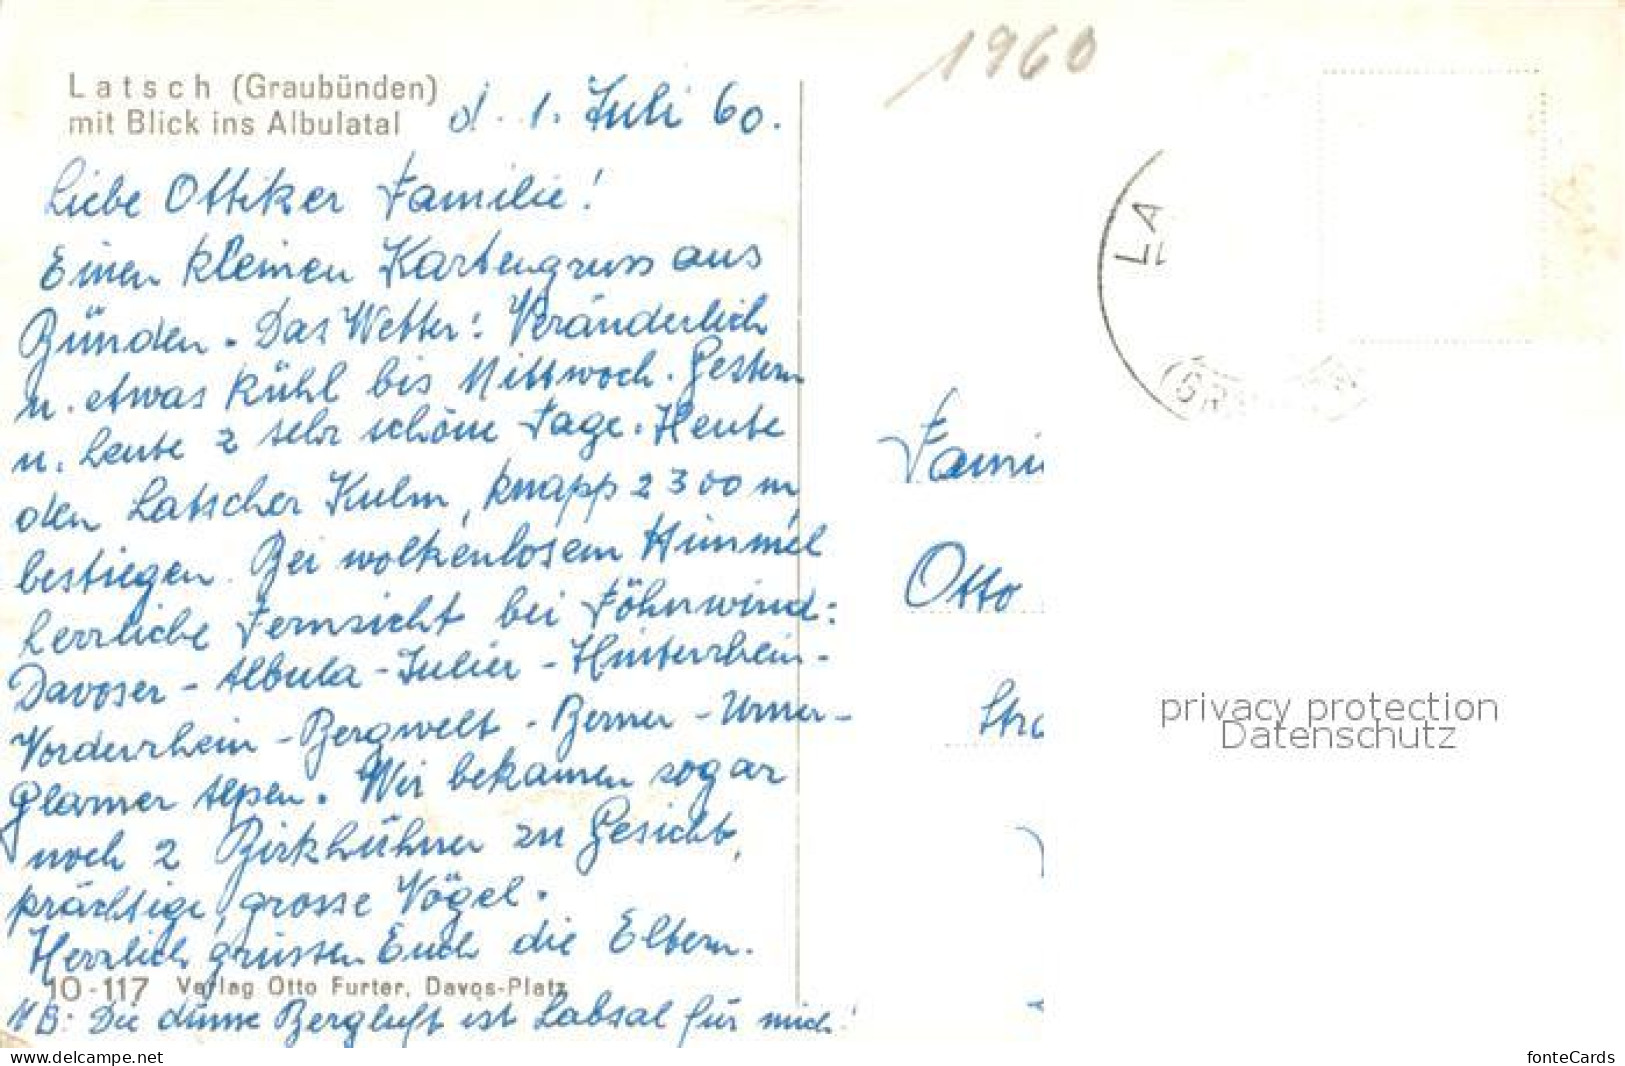 1960
Latsch (Graubünden)
mit Blick ins Albulatal
d. 1. Juli 60.
Liebe Ottiker Familie!
Einen kleinen Kartengruss aus
Bünden. Das Wetter: Veränderlich
u. etwas kühl bis Mittwoch. Gestern
u. heute 2 sehr schöne Tage. Heute
den Latscher Kulm, knapp 2300 m,
bestiegen. Bei wolkenlosem Himmel
herrliche Fernsicht bei Föhnwind:
Davoser - Albula - Julier - Hinterrhein -
Vorderrhein - Bergwelt - Berner - Urner -
Glarner Alpen. Wir bekamen sogar
noch 2 Birkhühner zu Gesicht,
prächtige, grosse Vögel.
Herzlich grüssen Euch die Eltern.
10-117 Verlag Otto Furter, Davos-Platz
NB: Die dünne Bergluft ist Labsal für mich!
LA
(GR
Fami
Otto
Str
privacy protection
Datenschutz
www.delcampe.net
fonteCards